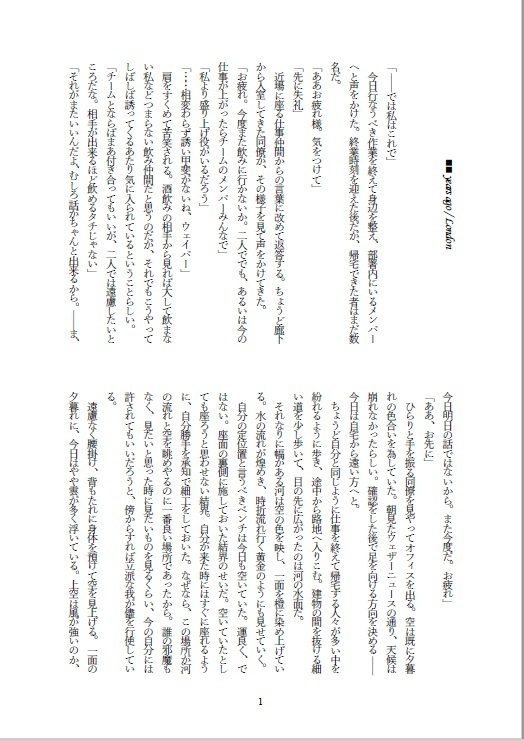 ■■ years ago / London
「――では私はこれで」
　今日行なうべき作業を終えて身辺を整え、部署内にいるメンバー
へと声をかけた。終業時刻を迎えた後だが、帰宅できた者はまだ数
名だ。
「ああお疲れ様、気をつけて」
「先に失礼」
　近場に座る仕事仲間からの言葉に改めて返答する。ちょうど廊下
から入室してきた同僚が、その様子を見て声をかけてきた。
「お疲れ。今度また飲みに行かないか。二人ででも、あるいは今の
仕事が上がったらチームのメンバーみんなで」
「私より盛り上げ役がいるだろう」
「……相変わらず誘い甲斐がないね、ウェイバー」
　肩をすくめて苦笑される。酒飲みの相手から見れば大して飲まな
い私などつまらない飲み仲間だと思うのだが、それでもこうやって
しばしば誘ってくるあたり気に入られているということらしい。
「チームとならばまあ付き合ってもいいが、二人では遠慮したいと
ころだな。相手が出来るほど飲めるタチじゃない」
「それがまたいいんだよ、むしろ話がちゃんと出来るから。――ま、
今日明日の話ではないから。また今度だ。お疲れ」
「ああ、お先に」
　ひらりと手を振る同僚を見やってオフィスを出る。空は既に夕暮
れの色合いを為していた。朝見たウェザーニュースの通り、天候は
崩れなかったらしい。確認をした後で足を向ける方向を決める――
今日は自宅から遠い方へと。
　ちょうど自分と同じように仕事を終えて帰宅する人々が多い中を
紛れるように歩き、途中から路地へ入りこむ。建物の間を抜ける細
い道を少し歩いて、目の先に広がったのは河の水面だ。
　それなりに幅がある河は空の色を映し、一面を橙に染め上げてい
る。水の流れが煌めき、時折流れ行く黄金のようにも見せていく。
　自分の定位置と言うべきベンチは今日も空いていた。運良く、で
はない。座面の裏側に施しておいた結界のせいだ。空いていたとし
ても座ろうと思わせない結界。自分が来た時にはすぐに座れるよう
に、自分勝手を承知で細工をしておいた。なぜなら、この場所が河
の流れと空を眺めやるのに一番良い場所であったから。誰の邪魔も
なく、見たいと思った時に見たいものを見るくらい、今の自分には
許されてもいいだろうと、傍からすれば立派な我が儘を行使してい
る。
　遠慮なく腰掛け、背もたれに身体を預けて空を見上げる。一面の
夕暮れに、今日はやや雲が多く浮いている。上空は風が強いのか、
1